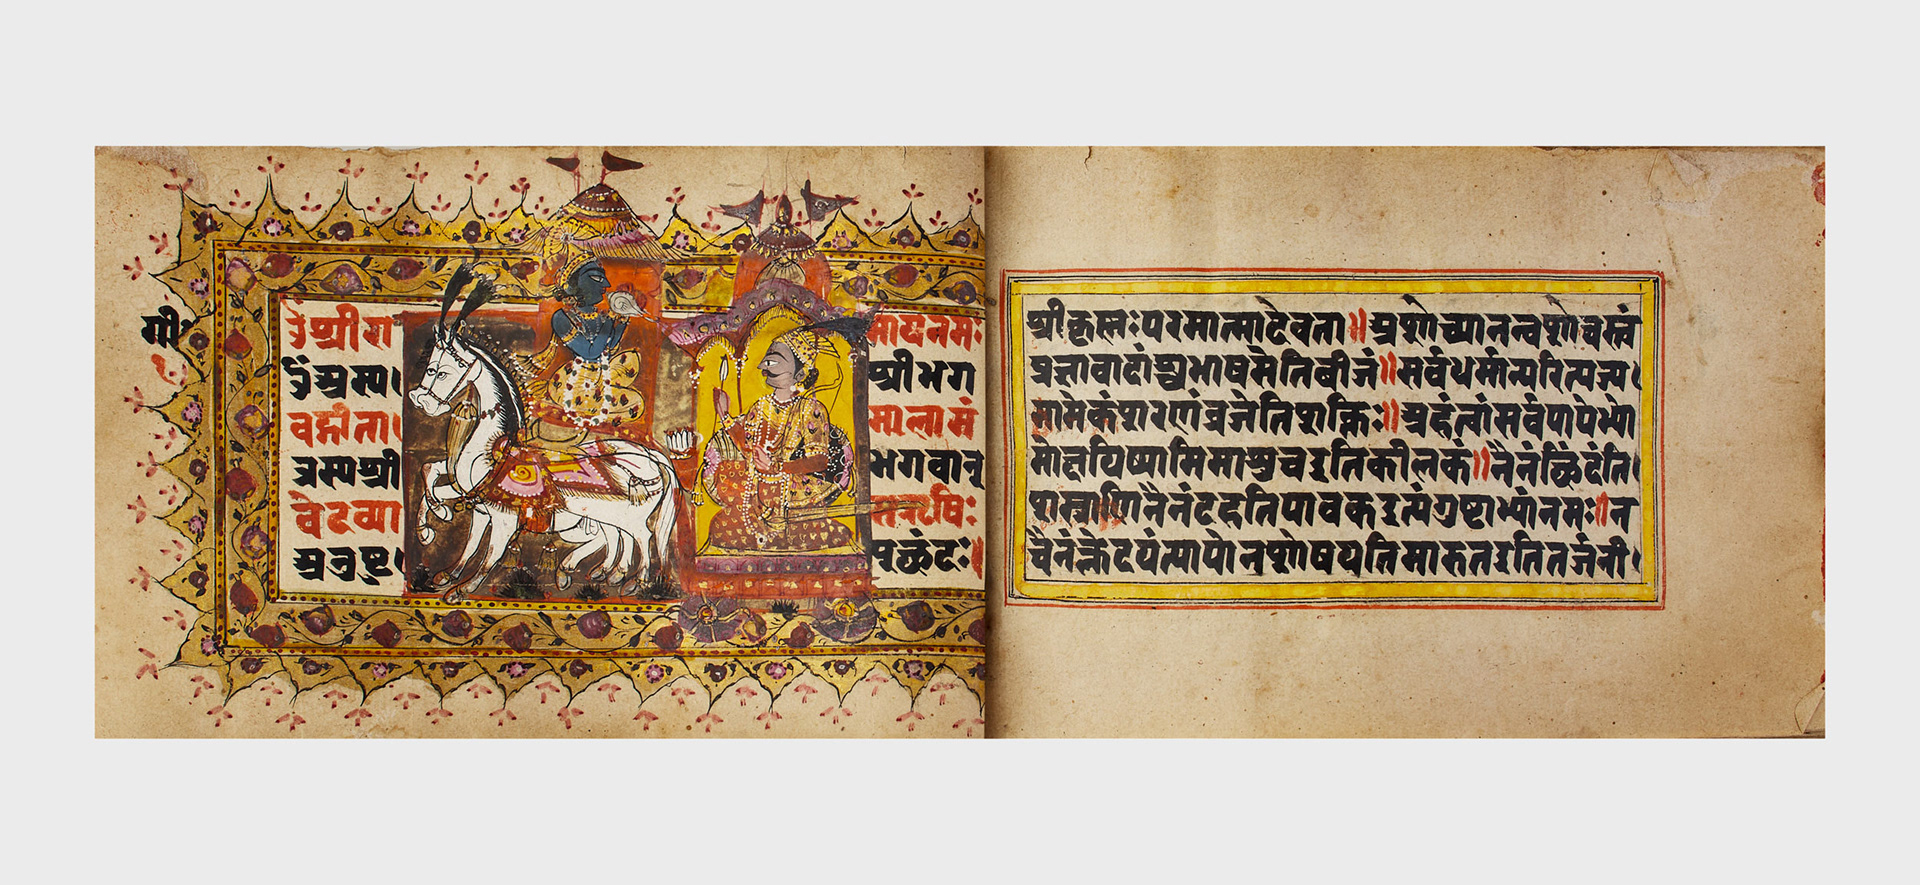 गी॰
ॐ श्री ग मायनमः
ॐ अस्य श्री भग
वद्गीता मालामं
त्रस्य श्री भगवान्
वेदव्या ऋषिः
अनुष्टु प्छंदः॥
श्रीकृस्नः परमात्मादेवता॥ अशोच्यानन्वशोचस्त्वं
प्रज्ञावादांश्चभाषसेतिबीजं॥ सर्वधर्मान्परित्यज्य
मामेकंशरणंव्रजेतिशक्तिः॥ अहंत्वांसर्वपापेभ्यो
मोक्षयिष्यामिमाशुचइतिकीलकं॥ नैनंछिंदंति
शस्त्राणिनैनंदहतिपावकइत्यंगुष्टाभ्यांनमः॥ न
चैनंक्लेदयंत्यापोनशोषयतिमारुतइतितर्जनी